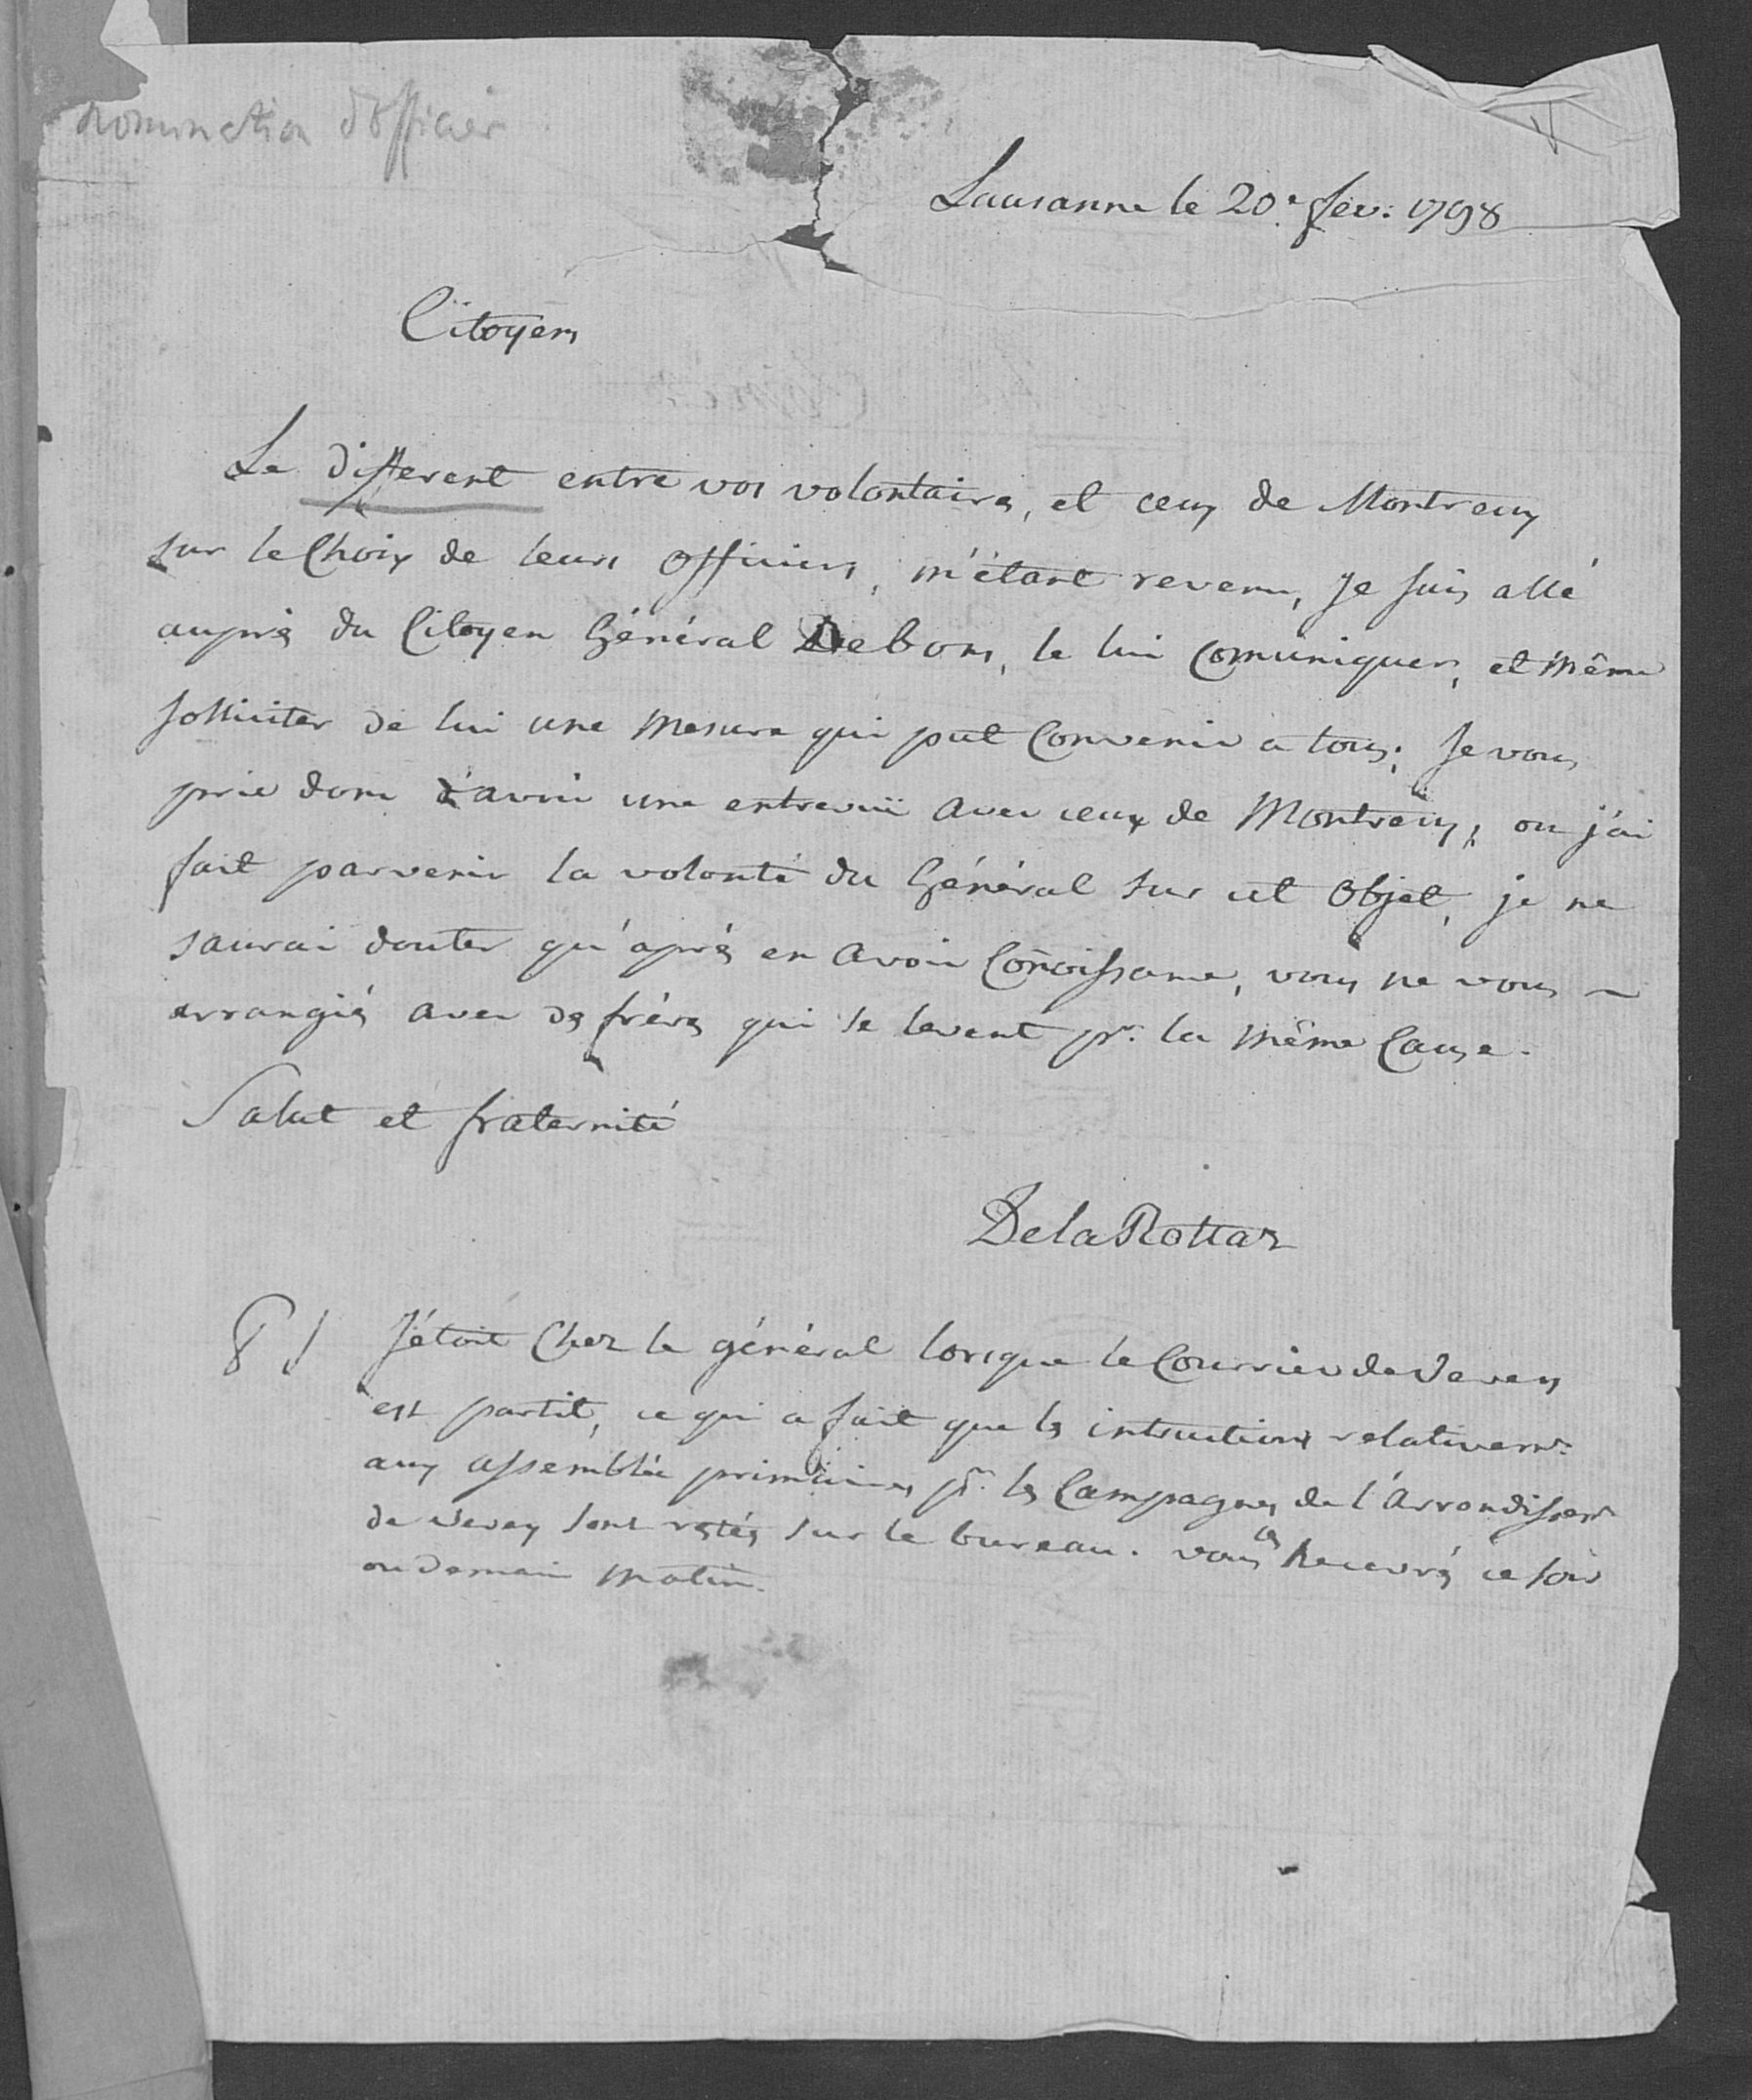 nomination d'officier
Lausanne le 20.e fev: 1798
Citoyens
Le different entre vos volontaires, et ceux de Montreux
sur le Choix de leurs officiers, m'étant revenu, Je suis allé
auprès du Citoyen Général Debons, le lui comuniquer, et même
solliciter de lui une mesure qui put Convenir a tous; Je vous
prie donc d'avoir une entrevuë avec ceux de Montreux, ou j'ai
fait parvenir la volonté du Général sur cet objet, je ne
saurai douter qu'après en avoir Conoissance, vous ne vous
arrangiés avec des fréres qui se levent pr. la même Cause.
Salut et fraternité
De la Rottaz
PS J'étoit Chez le général lorsque le Courrier de Vevey
est partit, ce qui a fait que les intructions relativemt:
aux assemblée primaires pr. les Campagnes de l'Arrondissemt
de Vevey sont restés sur le bureau. vous les recevrés ce soir
ou demain matin.